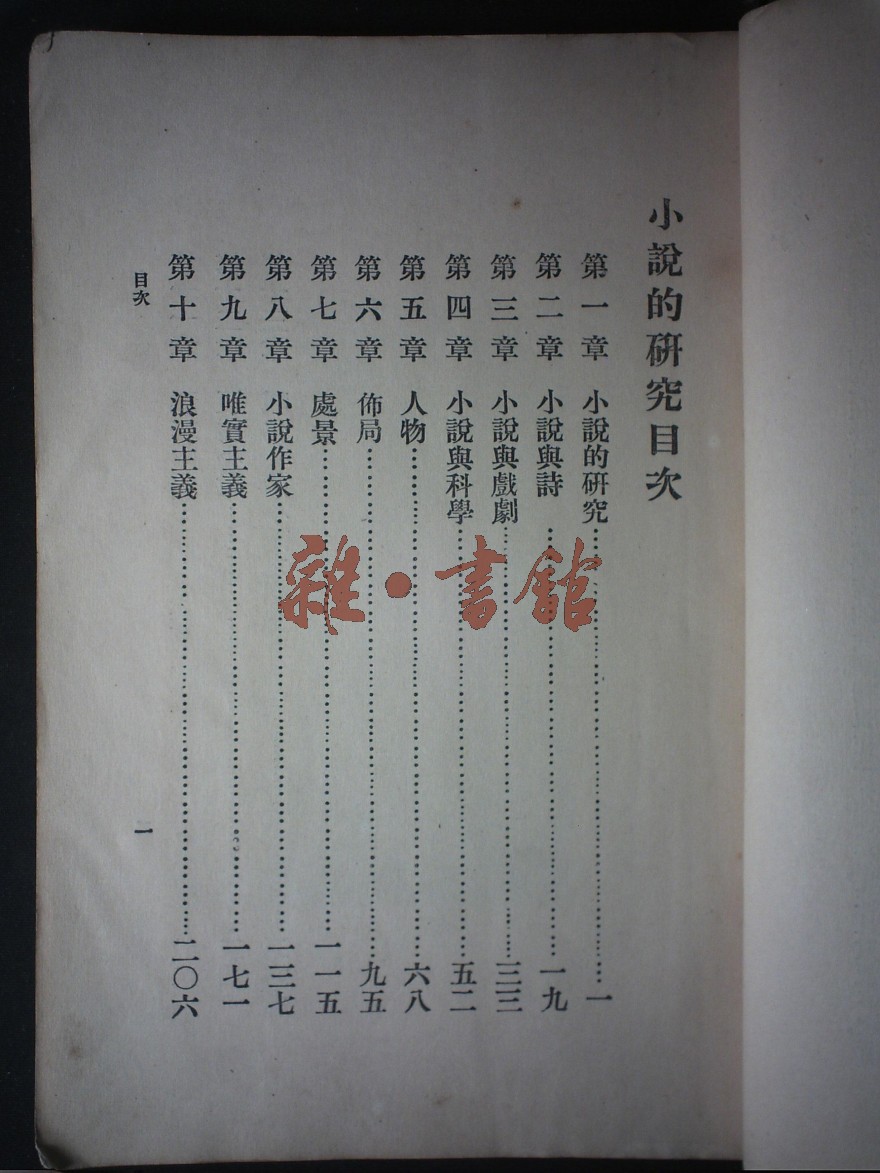 小說的硏究目次
第一章 小說的硏究……一
第二章 小說與詩……一九
第三章 小說與戲劇……三三
第四章 小說與科學……五二
第五章 人物……六八
第六章 佈局……九五
第七章 處景……一一五
第八章 小說作家……一三七
第九章 唯實主義……一七一
第十章 浪漫主義……二〇六
目次
一
雜·書館